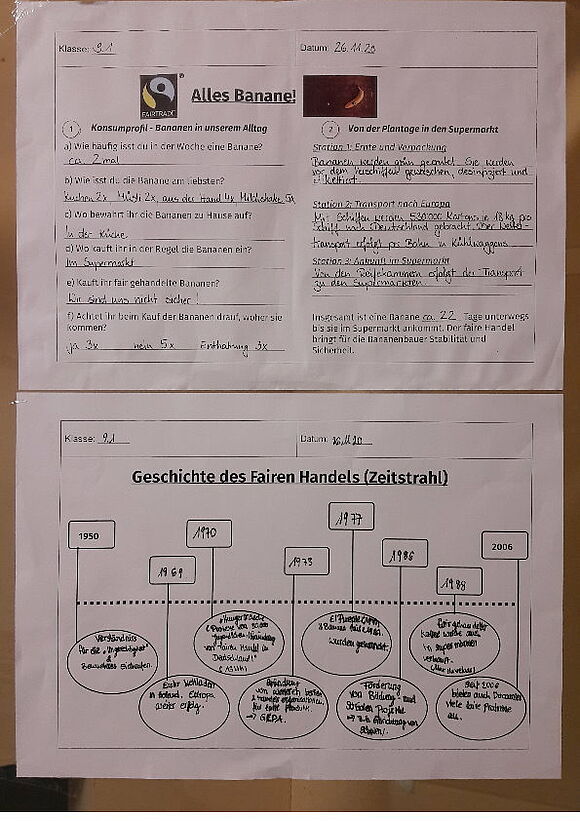 Klasse: 9.1
Datum: 26.11.20
FAIRTRADE
®
Alles Banane!
1 Konsumprofil - Bananen in unserem Alltag
a) Wie häufig isst du in der Woche eine Banane?
ca. 2 mal
b) Wie isst du die Banane am liebsten?
kuchen 2x Müsli 2x, aus der Hand 4x Milchshake 5x
c) Wo bewahrt ihr die Bananen zu Hause auf?
In der Küche
d) Wo kauft ihr in der Regel die Bananen ein?
Im Supermarkt
e) Kauft ihr fair gehandelte Bananen?
Wir sind uns nicht sicher!
f) Achtet ihr beim Kauf der Bananen drauf, woher sie
kommen?
ja 3x nein 5x Enthaltung 3x
2 Von der Plantage in den Supermarkt
Station 1: Ernte und Verpackung
Bananen werden grün geerntet. Sie werden
vor dem verschiffen gewaschen, desinfiziert und
etikettiert.
Station 2: Transport nach Europa
Mit Schiffen werden 530.000 Kartons in 18 kg pro
Schiff nach Deutschland gebracht. Der
transport erfolgt per Bahn in Kühlwaggons.
Station 3: Ankunft im Supermarkt
Von den Reifekammern erfolgt der Transport
zu den Supermärkten.
Insgesamt ist eine Banane ca. 22 Tage unterwegs
bis sie im Supermarkt ankommt. Der faire Handel
bringt für die Bananenbauer Stabilität und
Sicherheit.
Klasse: 9.1
Datum: 26.11.20
Geschichte des Fairen Handels (Zeitstrahl)
1950
1969
1970
1973
1977
1986
1988
2006
Verständnis
für die "Ungerechtigkeit" &
Erster Weltladen
in Holland. Europa
weit erfolg.
"Hungermärsche"
"fairen Handel in
Deutschland"
Gründung
von
Handelsorganisationen
für faire Produkte.
→ GEPA.
El Puente
wurden gegründet.
Förderung
von Bildung- und
Sozialen Projekte
→ z.B. Gründung von
Schulen.
Fair gehandelter
Kaffee wurde auch
in Supermärkten
verkauft.
Seit 2006
bieten auch Discounter
viele faire Produkte
an.